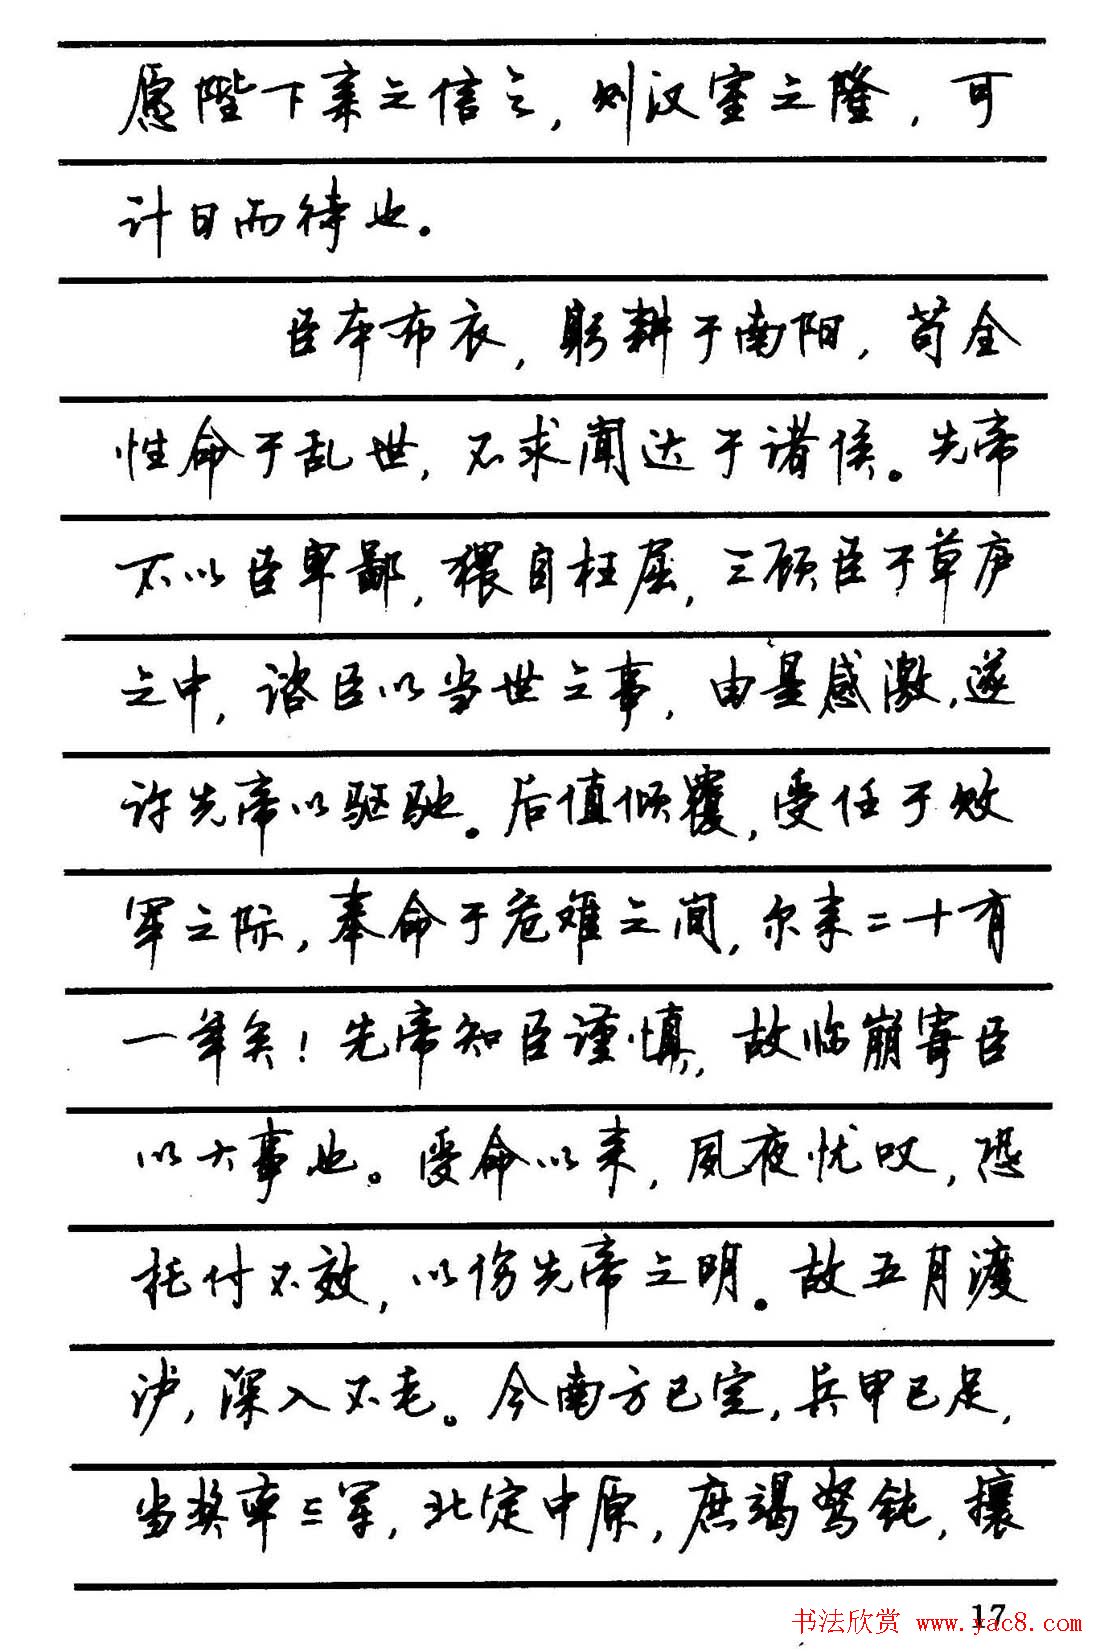 愿陛下亲之信之，则汉室之隆，可
计日而待也。
臣本布衣，躬耕于南阳，苟全
性命于乱世，不求闻达于诸侯。先帝
不以臣卑鄙，猥自枉屈，三顾臣于草庐
之中，谘臣以当世之事，由是感激，遂
许先帝以驱驰。后值倾覆，受任于败
军之际，奉命于危难之间，尔来二十有
一年矣！先帝知臣谨慎，故临崩寄臣
以大事也。受命以来，夙夜忧叹，恐
托付不效，以伤先帝之明。故五月渡
泸，深入不毛。今南方已定，兵甲已足，
当奖率三军，北定中原，庶竭驽钝，攘
17
书法欣赏 www.yac8.com